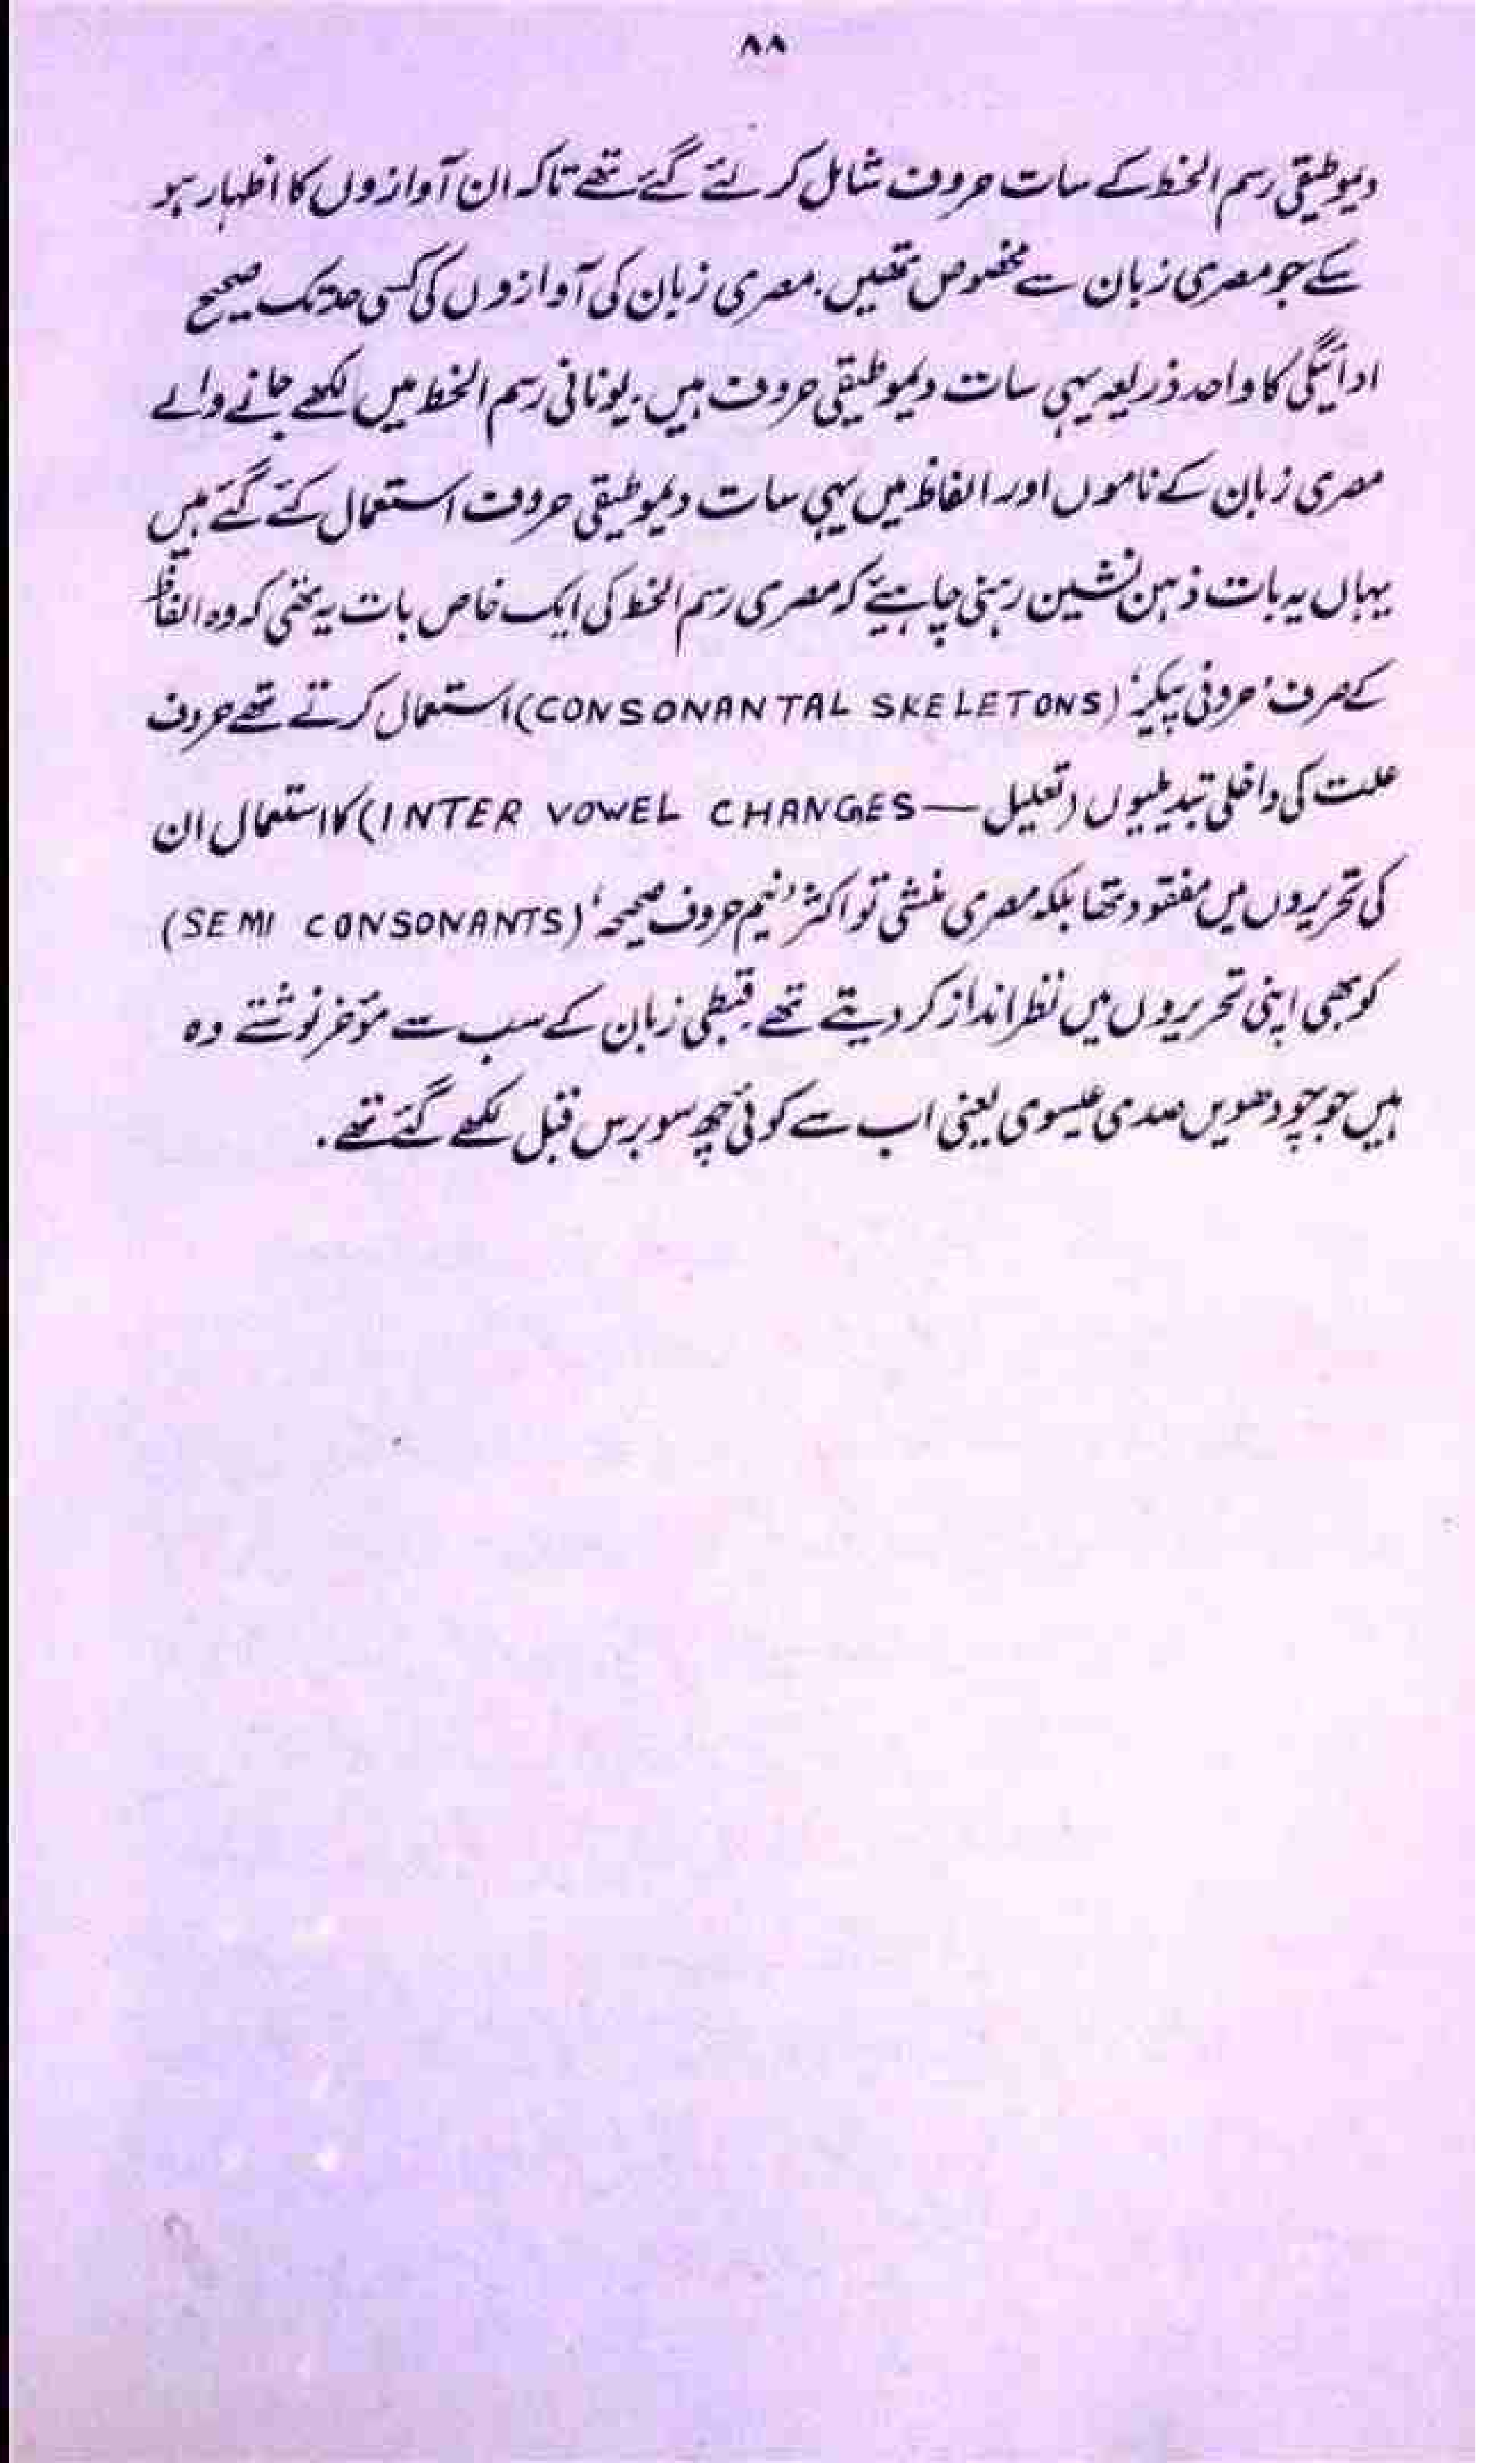 ۸۸
دیموطیقی رسم الخط کے سات حروف شامل کر لئے گئے تھے تاکہ ان آوازوں کا اظہار ہو
سکے جو مصری زبان سے مخصوص تھیں. مصری زبان کی آوازوں کی کسی حد تک صحیح
ادائیگی کا واحد ذریعہ یہی سات دیموطیقی حروف ہیں. یونانی رسم الخط میں لکھے جانے والے
مصری زبان کے ناموں اور الفاظ میں یہی سات دیموطیقی حروف استعمال کئے گئے ہیں
یہاں یہ بات ذہن نشین رہنی چاہیئے کہ مصری رسم الخط کی ایک خاص بات یہ تھی کہ وہ الفاظ
کے صرف ’حروفی پیکر‘ (CONSONANTAL SKELETONS) استعمال کرتے تھے حروف
علت کی داخلی تبدیلیوں (تعلیل — INTER VOWEL CHANGES) کا استعمال ان
کی تحریروں میں مفقود تھا بلکہ مصری منشی تو اکثر ’نیم حروف صحیحہ‘ (SEMI CONSONANTS)
کو بھی اپنی تحریروں میں نظر انداز کر دیتے تھے. قبطی زبان کے سب سے مؤخر نوشتے وہ
ہیں جو چودھویں صدی عیسوی یعنی اب سے کوئی چھ سو برس قبل لکھے گئے تھے.